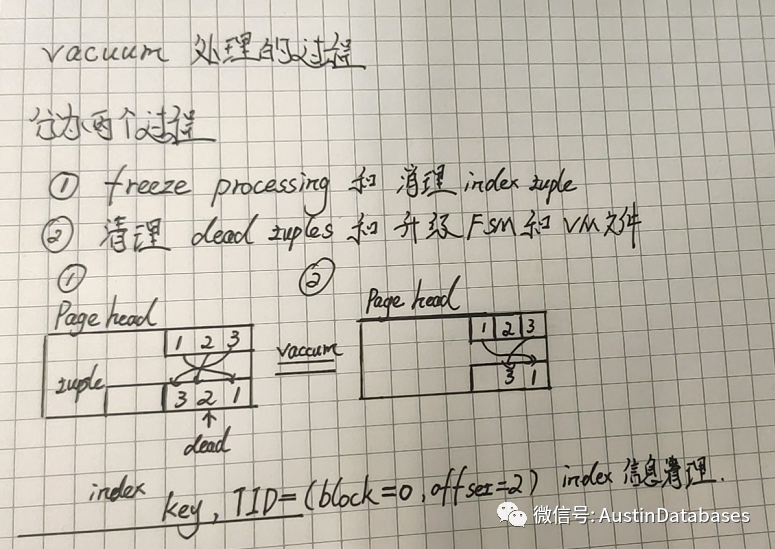 vacuum 处理的过程
分为两个过程
① freeze processing 和 清理 index tuple
② 清理 dead tuples 和 升级 FSM 和 VM文件
①
②
Page head
Page head
1 2 3
1 2 3
vaccum
tuple
3 2 1
3 1
dead
index
key, TID=(block=0, offset=2) index 信息清理.
微信号: AustinDatabases